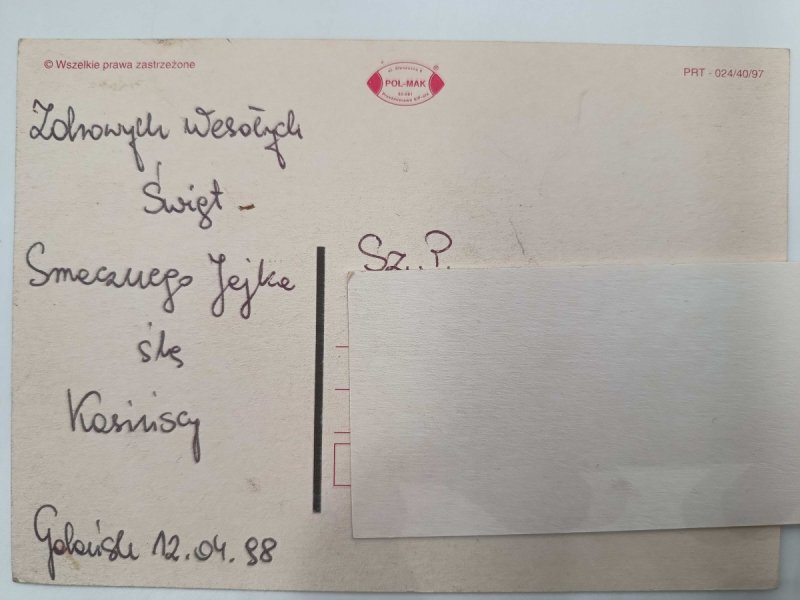 © Wszelkie prawa zastrzeżone
POL-MAK
®
PRT - 024/40/97
Zdrowych Wesołych
Świąt -
Smacznego Jajka
ślą
Kasińscy
Gdańsk 12.04.98
Sz. P.